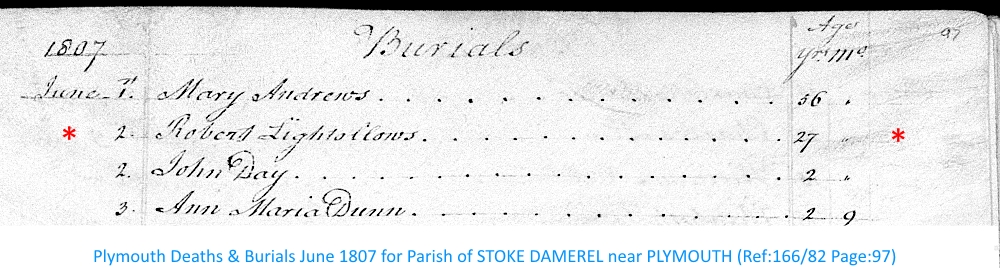 Ages 97
1807 Burials Yrs Mo
June 1st. Mary Andrews . . . . . . . . . . . . . 56 "
* 2. Robert Lightollows . . . . . . . . . . . . 27 " *
2. John Day . . . . . . . . . . . . . . . 2 "
3. Ann Maria Dunn . . . . . . . . . . . . 2 9
Plymouth Deaths & Burials June 1807 for Parish of STOKE DAMEREL near PLYMOUTH (Ref:166/82 Page:97)